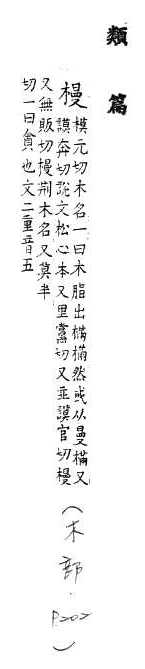 類篇
樠 模元切木名一曰木脂出樠樠然或从曼樠又
謨奔切說文松心木又里黨切又並謨官切槾
又無販切槾荆木名又莫半
切一曰㒼也文二重音五
(木部·P202)